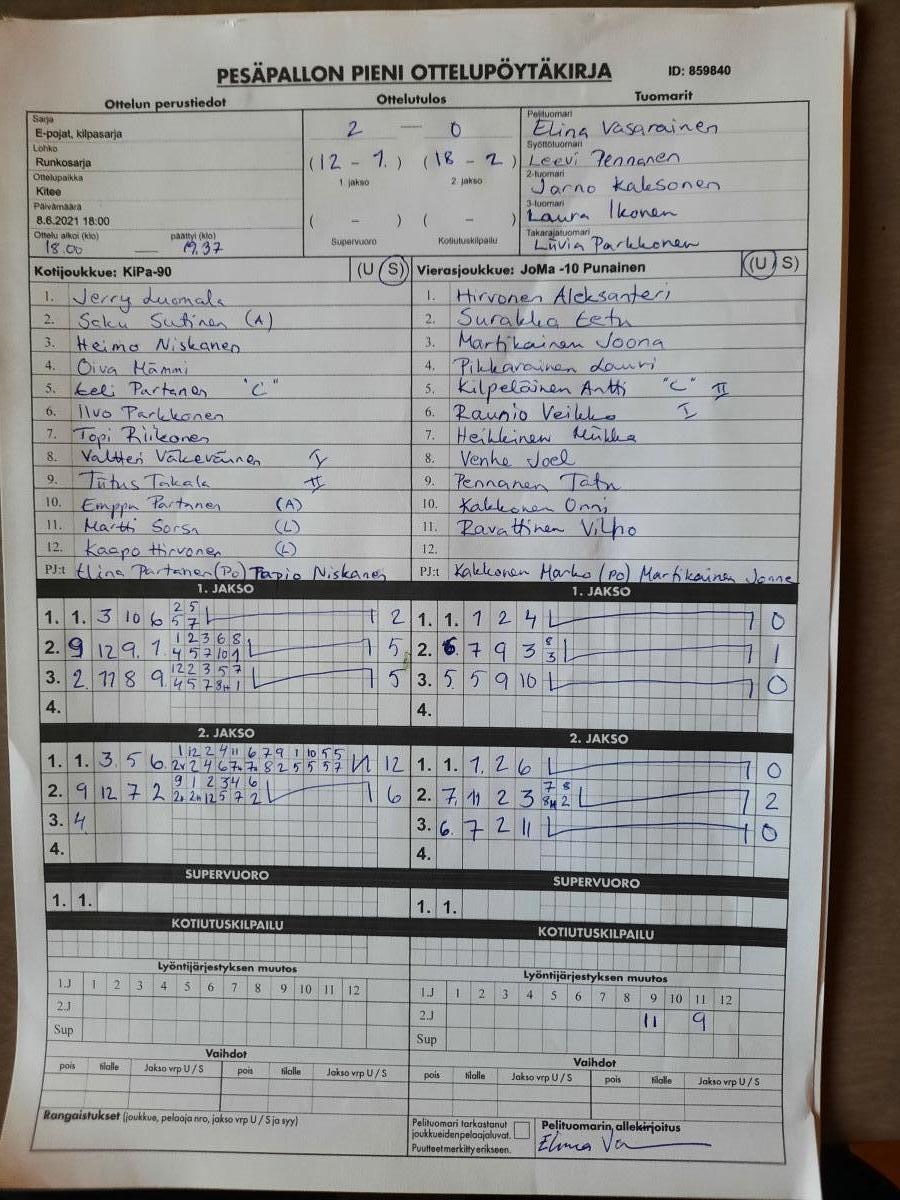 PESÄPALLON PIENI OTTELUPÖYTÄKIRJA ID: 859840
Ottelun perustiedot Ottelutulos Tuomarit
Sarja
E-pojat, kilpasarja
Lohko
Runkosarja
Ottelupaikka
Kitee
Päivämäärä
8.6.2021 18:00
Ottelu alkoi (klo) päättyi (klo)
18.00 — 19.37
2 — 0
(12 - 1.) (18 - 2)
1. jakso 2. jakso
( - ) ( - )
Supervuoro Kotiutuskilpailu
Pelituomari
Elina Vasarainen
Syöttötuomari
Leevi Pennanen
2-tuomari
Jarno Kaksonen
3-tuomari
Laura Ikonen
Takarajatuomari
Liivia Parkkonen
Kotijoukkue: KiPa-90 (U S)
1. Jerry Luomala
2. Seku Sutinen (A)
3. Heimo Niskanen
4. Oiva Mämmi
5. Eeli Partanen "C"
6. Ilvo Parkkonen
7. Topi Riikonen
8. Valtteri Väkeväinen I
9. Tiitus Takala II
10. Emppu Partanen (A)
11. Martti Sorsa (L)
12. Kaapo Hirvonen (L)
PJ:t Elina Partanen (PO) Tapio Niskanen
Vierasjoukkue: JoMa -10 Punainen (U S)
1. Hirvonen Aleksanteri
2. Surakka Eetu
3. Martikainen Joona
4. Pikkarainen Lauri
5. Kilpeläinen Antti "C" II
6. Raunio Veikko I
7. Heikkinen Miikka
8. Venho Joel
9. Pennanen Tatu
10. Kakkonen Onni
11. Ravattinen Vilho
12.
PJ:t Kakkonen Marko (PO) Martikainen Janne
1. JAKSO
1. 1. 3 10 6 2 5 2
5 7
2. 9 12 9. 1. 1 2 3 6 8 5
4 5 7 10 1
3. 2 11 8 9 12 2 3 5 7 5
4 5 7 8H 1
4.
1. JAKSO
1. 1. 1 2 4 0
2. 6 7 9 3 8 1
3
3. 5 5 9 10 0
4.
2. JAKSO
1. 1. 3. 5 6. 1 12 2 4 11 6 7 9 1 10 5 5 12
2. 9 12 7 2 9 1 2 3 4 6 6
3. 4
4.
2. JAKSO
1. 1. 1. 2 6 0
2. 7. 11 2 3 7 8 2
8H 2
3. 6. 7 2 11 0
4.
SUPERVUORO
1. 1.
KOTIUTUSKILPAILU
SUPERVUORO
1. 1.
KOTIUTUSKILPAILU
Lyöntijärjestyksen muutos
1.J 1 2 3 4 5 6 7 8 9 10 11 12
2.J
Sup
Vaihdot
pois tilalle Jakso vrp U / S pois tilalle Jakso vrp U / S
Lyöntijärjestyksen muutos
1.J 1 2 3 4 5 6 7 8 9 10 11 12
2.J 11 9
Sup
Vaihdot
pois tilalle Jakso vrp U / S pois tilalle Jakso vrp U / S
Rangaistukset (joukkue, pelaaja nro, jakso vrp U / S ja syy)
Pelituomari tarkastanut
joukkueidenpelaajaluvat.
Puutteetmerkittyerikseen.
Pelituomarin allekirjoitus